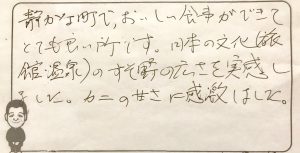 静かな町で、おいしい食事ができて
とても良い所です。日本の文化(旅
館・温泉)のすそ野の広さを実感し
ました。カニの甘さに感激しました。